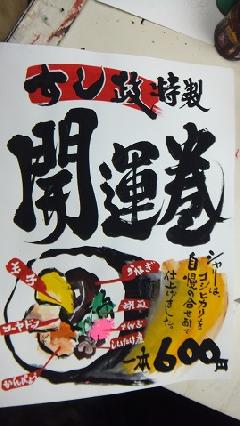 すし政特製
開運巻
シャリは、
コシヒカリを
自慢の合せ酢で
仕上げました。
玉子
うなぎ
胡瓜
でんぶ
しいたけ煮
かんぴょう
一本600円